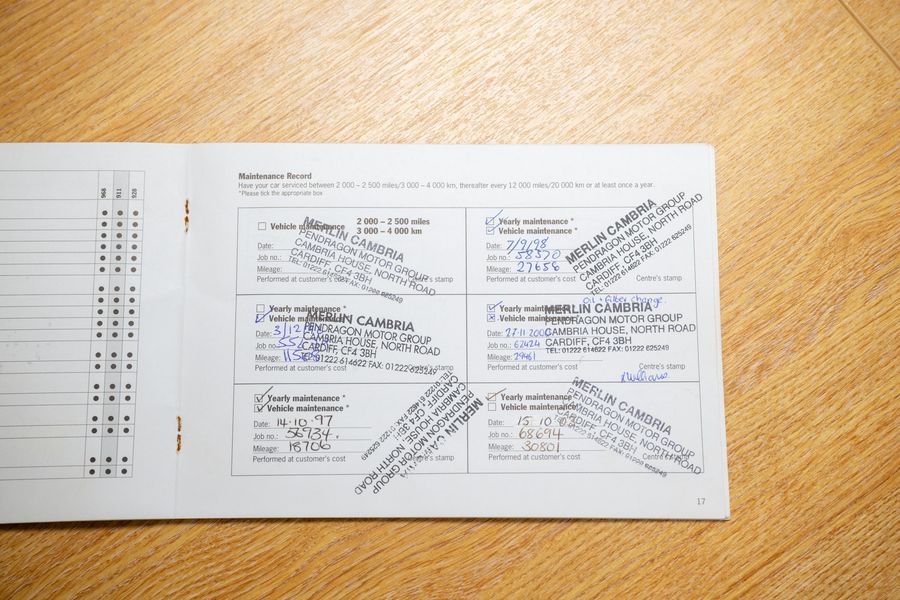 968
911
928
Maintenance Record
Have your car serviced between 2 000 – 2 500 miles/3 000 – 4 000 km, thereafter every 12 000 miles/20 000 km or at least once a year.
*Please tick the appropriate box
Vehicle maintenance 2 000 – 2 500 miles
3 000 – 4 000 km
Date:
Job no.:
Mileage:
Performed at customer's cost
stamp
MERLIN CAMBRIA
PENDRAGON MOTOR GROUP
CAMBRIA HOUSE, NORTH ROAD
CARDIFF, CF4 3BH
TEL: 01222 614622 FAX: 01222 625249
Yearly maintenance *
Vehicle maintenance *
Date: 3/12
Job no.:
Mileage:
Performed at customer's cost
MERLIN CAMBRIA
PENDRAGON MOTOR GROUP
CAMBRIA HOUSE, NORTH ROAD
CARDIFF, CF4 3BH
TEL: 01222 614622 FAX: 01222 625249
Yearly maintenance *
Vehicle maintenance *
Date: 14.10.97
Job no.: 56934
Mileage: 18706
Performed at customer's cost
Centre's stamp
MERLIN CAMBRIA
PENDRAGON MOTOR GROUP
CAMBRIA HOUSE, NORTH ROAD
CARDIFF, CF4 3BH
TEL: 01222 614622 FAX: 01222 625249
Yearly maintenance *
Vehicle maintenance *
Date: 7/9/98
Job no.: 58370
Mileage: 27656
Performed at customer's cost
Centre's stamp
MERLIN CAMBRIA
PENDRAGON MOTOR GROUP
CAMBRIA HOUSE, NORTH ROAD
CARDIFF, CF4 3BH
TEL: 01222 614622 FAX: 01222 625249
Oil + filter change.
Yearly maintenance
Vehicle maintenance *
Date: 27.11.2000
Job no.: 62424
Mileage: 29461
Performed at customer's cost
Centre's stamp
MERLIN CAMBRIA
PENDRAGON MOTOR GROUP
CAMBRIA HOUSE, NORTH ROAD
CARDIFF, CF4 3BH
TEL: 01222 614622 FAX: 01222 625249
Yearly maintenance
Vehicle maintenance
Date: 15 10
Job no.: 68694
Mileage: 30801
Performed at customer's cost
Centre's stamp
MERLIN CAMBRIA
PENDRAGON MOTOR GROUP
CAMBRIA HOUSE, NORTH ROAD
CARDIFF, CF4 3BH
TEL: 01222 614622 FAX: 01222 625249
17